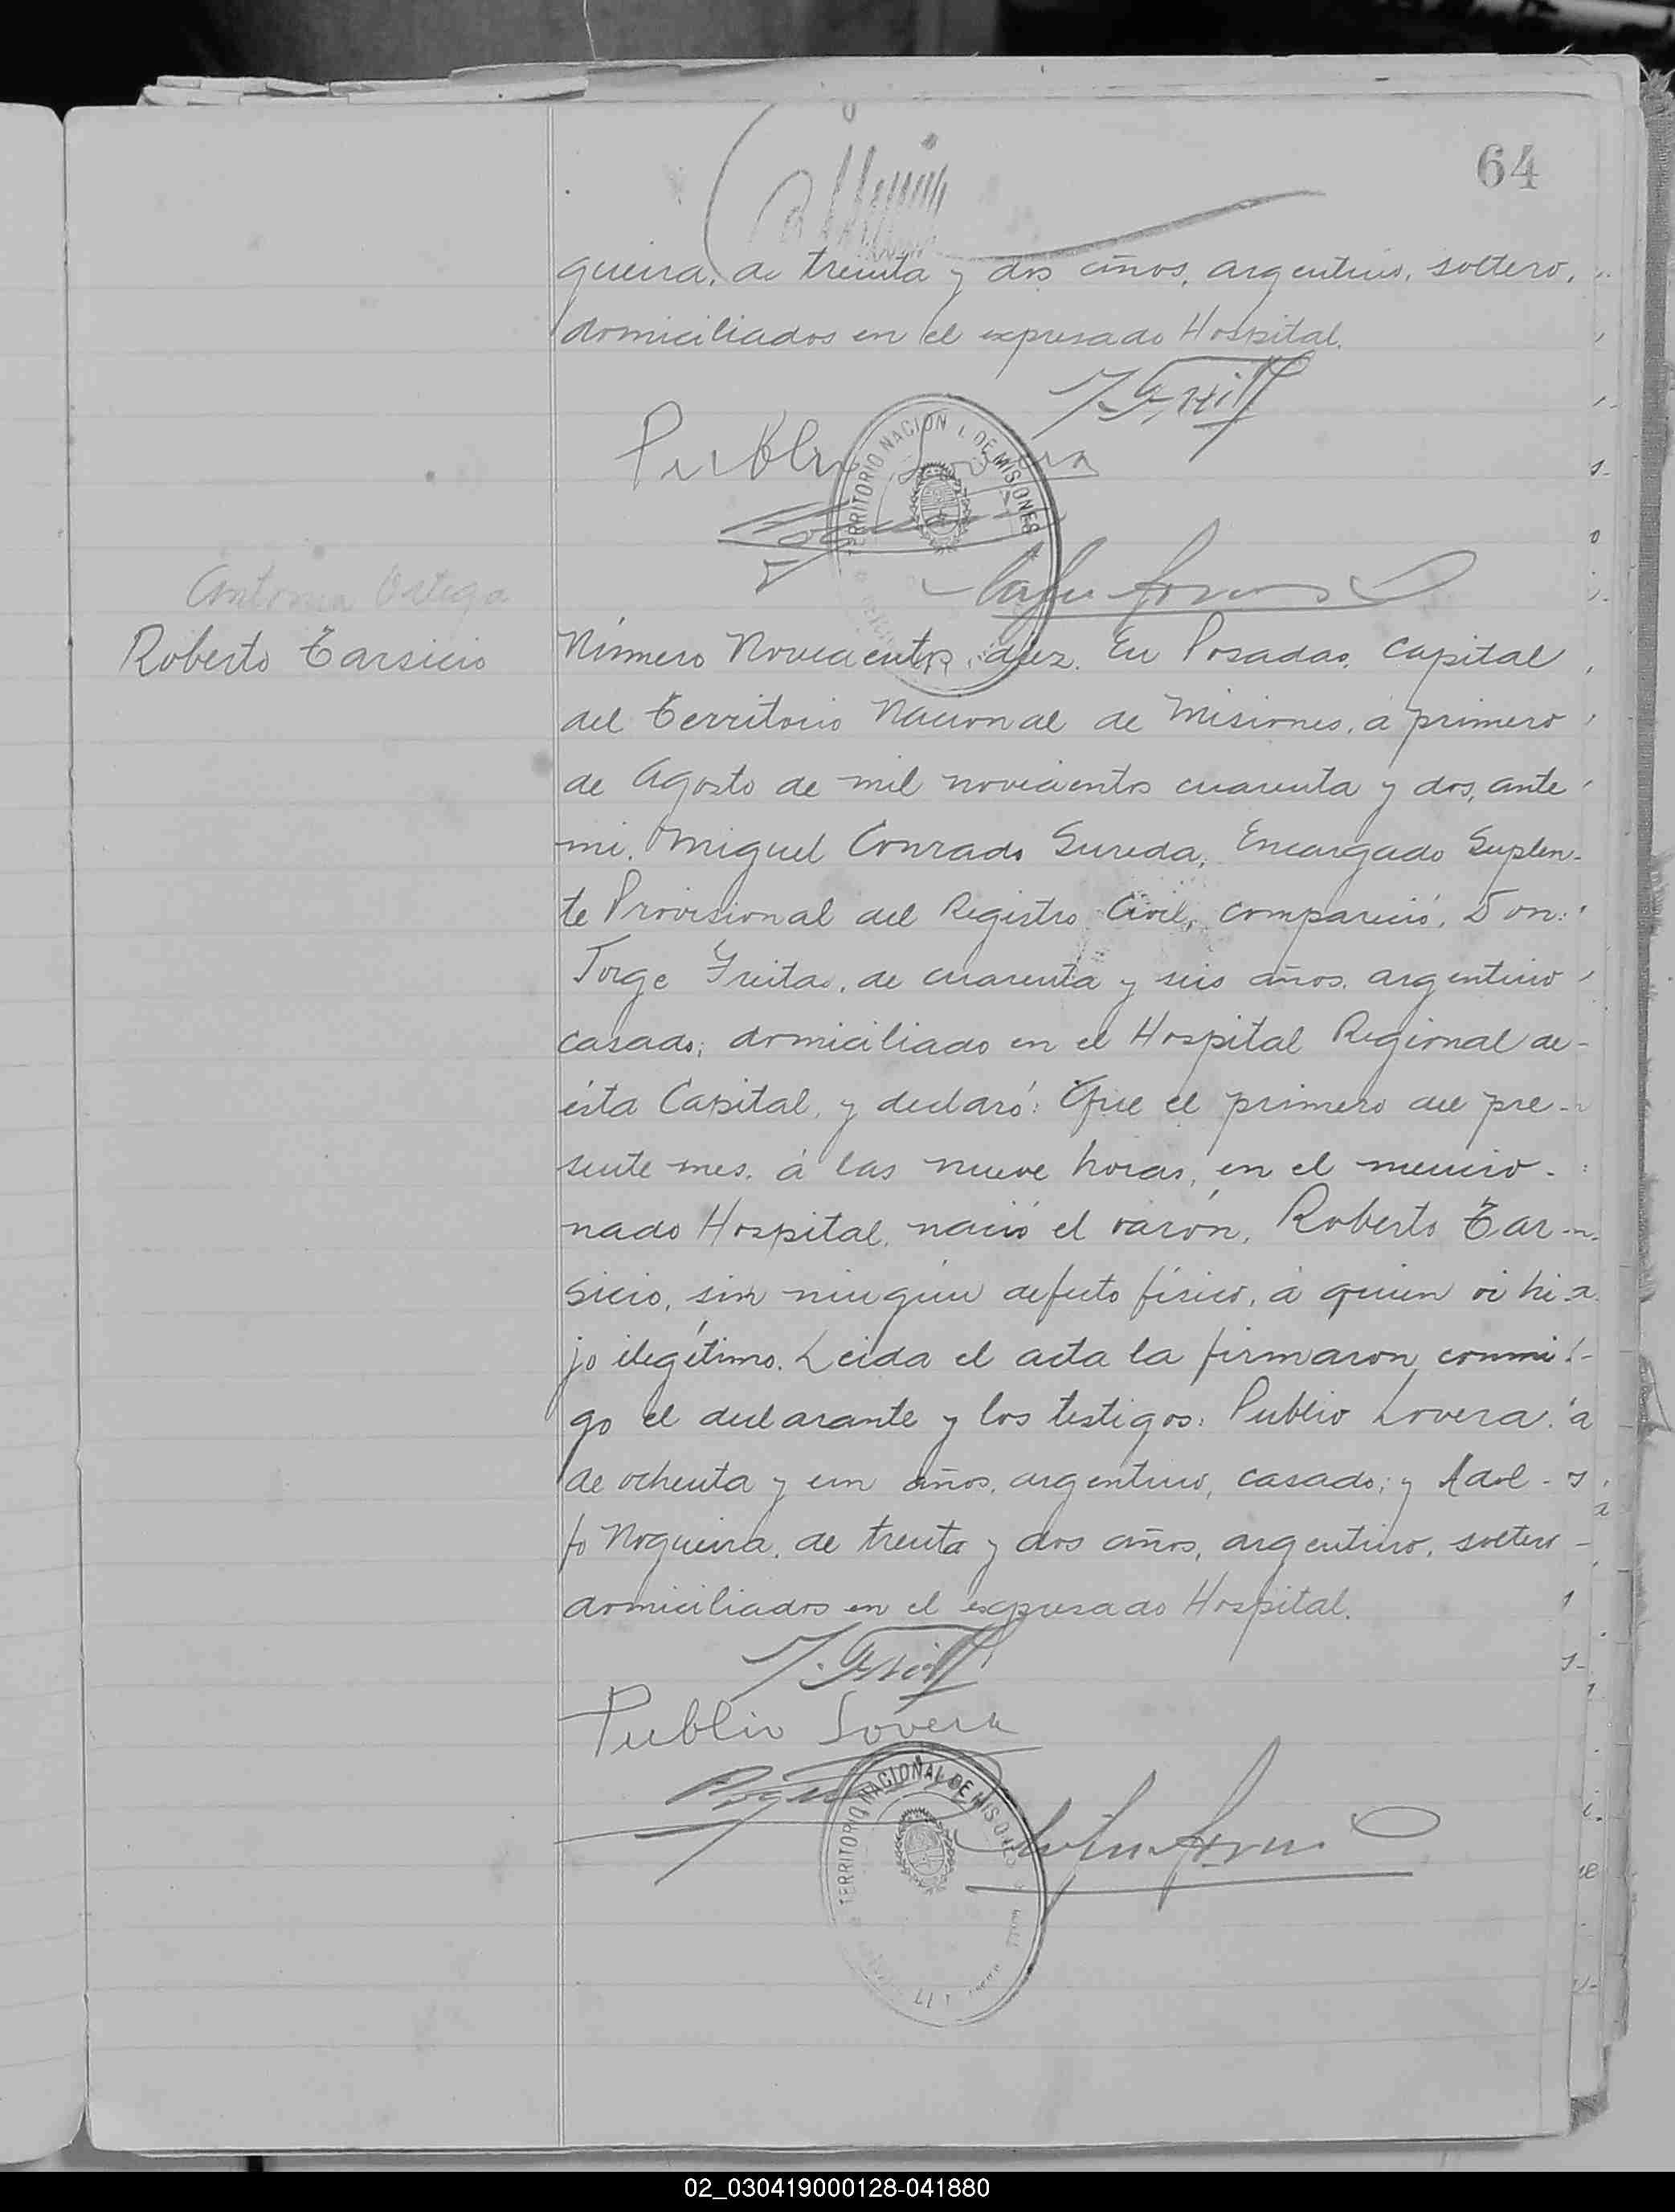 64
queira, de treinta y dos años, argentino, soltero,
domiciliados en el expresado Hospital.
Publio Lovera
TERRITORIO NACIONAL DE MISIONES
Antonia Ortega
Roberto Tarsicio
Número Novecientos diez. En Posadas, Capital
del Territorio Nacional de Misiones, á primero
de Agosto de mil novecientos cuarenta y dos, ante
mi, Miguel Conrado Sureda, Encargado Suplen-
te Provisional del Registro Civil, compareció, Don:
Jorge Freitas, de cuarenta y seis años, argentino
casado; domiciliado en el Hospital Regional de
ésta Capital, y declaró: Que el primero del pre-
sente mes, á las nueve horas, en el mencio-
nado Hospital, nació el varón, Roberto Tar-
sicio, sin ningún defecto físico, á quien vi hi-
jo ilegítimo. Leida el acta la firmaron conmi-
go el declarante y los testigos: Publio Lovera,
de ochenta y un años, argentino, casado; y Adol-
fo Noqueira, de treinta y dos años, argentino, soltero
domiciliados en el expresado Hospital.
Publio Lovera
TERRITORIO NACIONAL DE MISIONES
02_030419000128-041880